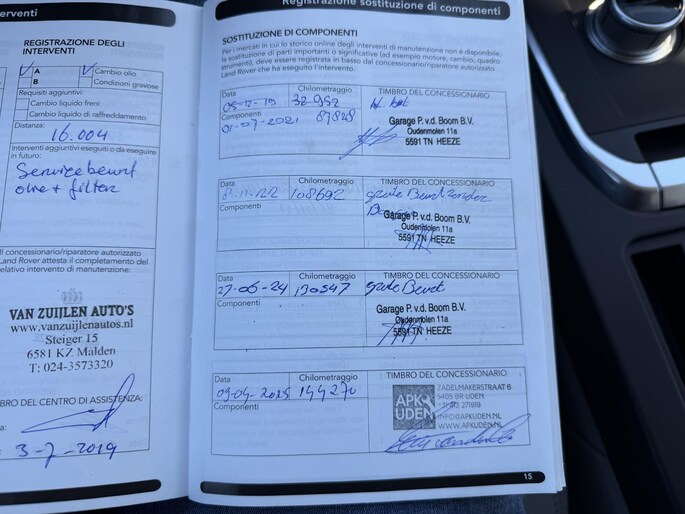 erventi
REGISTRAZIONE DEGLI
INTERVENTI
A
Cambio olio
B
Condizioni gravose
Requisiti aggiuntivi:
Cambio liquido freni
Cambio liquido di raffreddamento
Distanza:
16.004
Interventi aggiuntivi eseguiti o da eseguire
in futuro:
Servicebeurt
olie + filter
l concessionario/riparatore autorizzato
Land Rover attesta il completamento del
relativo intervento di manutenzione:
VAN ZUIJLEN AUTO'S
www.vanzuijlenautos.nl
Steiger 15
6581 KZ Malden
T: 024-3573320
BRO DEL CENTRO DI ASSISTENZA:
a:
3-7-2019
Registrazione sostituzione di componenti
SOSTITUZIONE DI COMPONENTI
Per i mercati in cui lo storico online degli interventi di manutenzione non è disponibile,
la sostituzione di parti importanti o significative (ad esempio motore, cambio, quadro
strumenti), deve essere registrata in basso dal concessionario/riparatore autorizzato
Land Rover che ha eseguito l'intervento.
Data
Chilometraggio
TIMBRO DEL CONCESSIONARIO
05-12-19
32952
Componenti
01-07-2021
87828
Garage P. v.d. Boom B.V.
Oudenmolen 11a
5591 TN HEEZE
Data
Chilometraggio
TIMBRO DEL CONCESSIONARIO
108692
grote Beurt
Componenti
Garage P. v.d. Boom B.V.
Oudenmolen 11a
5591 TN HEEZE
Data
Chilometraggio
TIMBRO DEL CONCESSIONARIO
27-06-24
130547
grote Beurt
Componenti
Garage P. v.d. Boom B.V.
Oudenmolen 11a
5591 TN HEEZE
Data
Chilometraggio
TIMBRO DEL CONCESSIONARIO
09-04-2025
144270
Componenti
APK
UDEN
ZADELMAKERSTRAAT 6
5405 BR UDEN
INFO@APKUDEN.NL
WWW.APKUDEN.NL
15